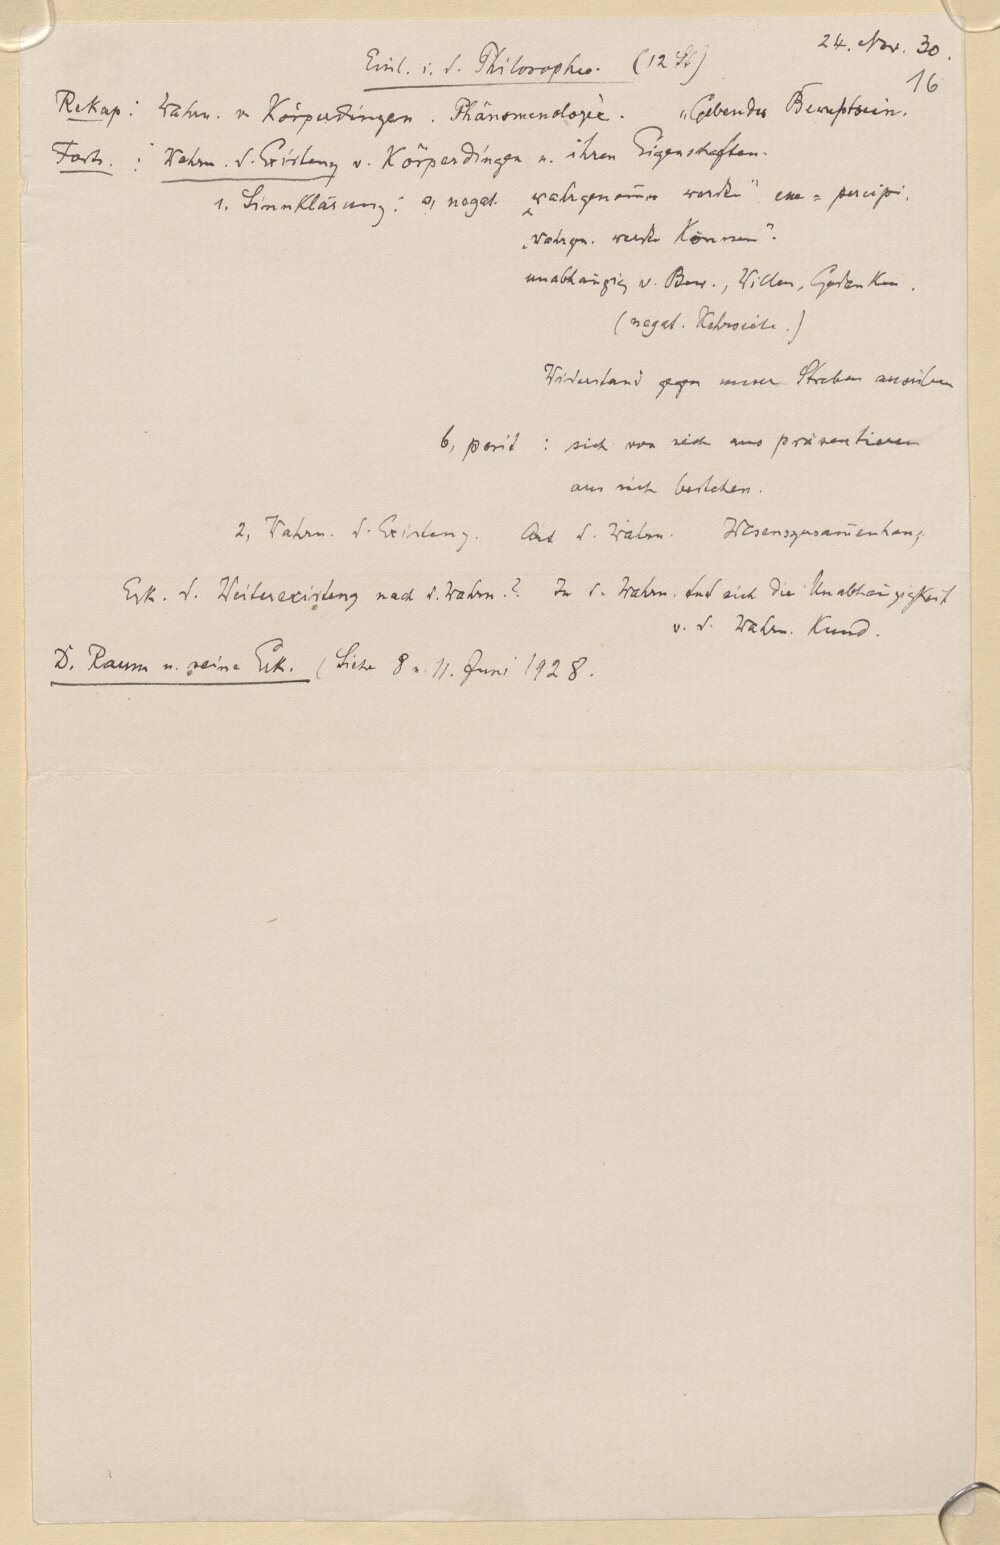 24. Nov. 30.
Einl. i. d. Philosophie. (12 St)
16
Rekap: Wahrn. v. Körperdingen. Phänomenologie. „Gebendes Bewußtsein.
Forts.: Wahrn. d. Existenz v. Körperdingen u. ihren Eigenschaften.
1, Sinnklärung: a, negat. „wahrgenom̅en werden" esse = percipi.
„Wahrgn. werden Können".
unabhängig v. Bew., Willen, Gedanken.
(negat. Kehrseite.)
Widerstand gegen unser Streben ausüben
b, posit: sich von sich aus präsentieren
aus sich bestehen.
2, Wahrn. d. Existenz. Art d. Wahrn. Wesenszusam̅enhang
Erk. d. Weiterexistenz nach d. Wahrn.? In d. Wahrn. tut sich die Unabhängigkeit
v. d. Wahrn. Kund.
D. Raum u. seine Erk. (Siehe 8 u. 11. Juni 1928.